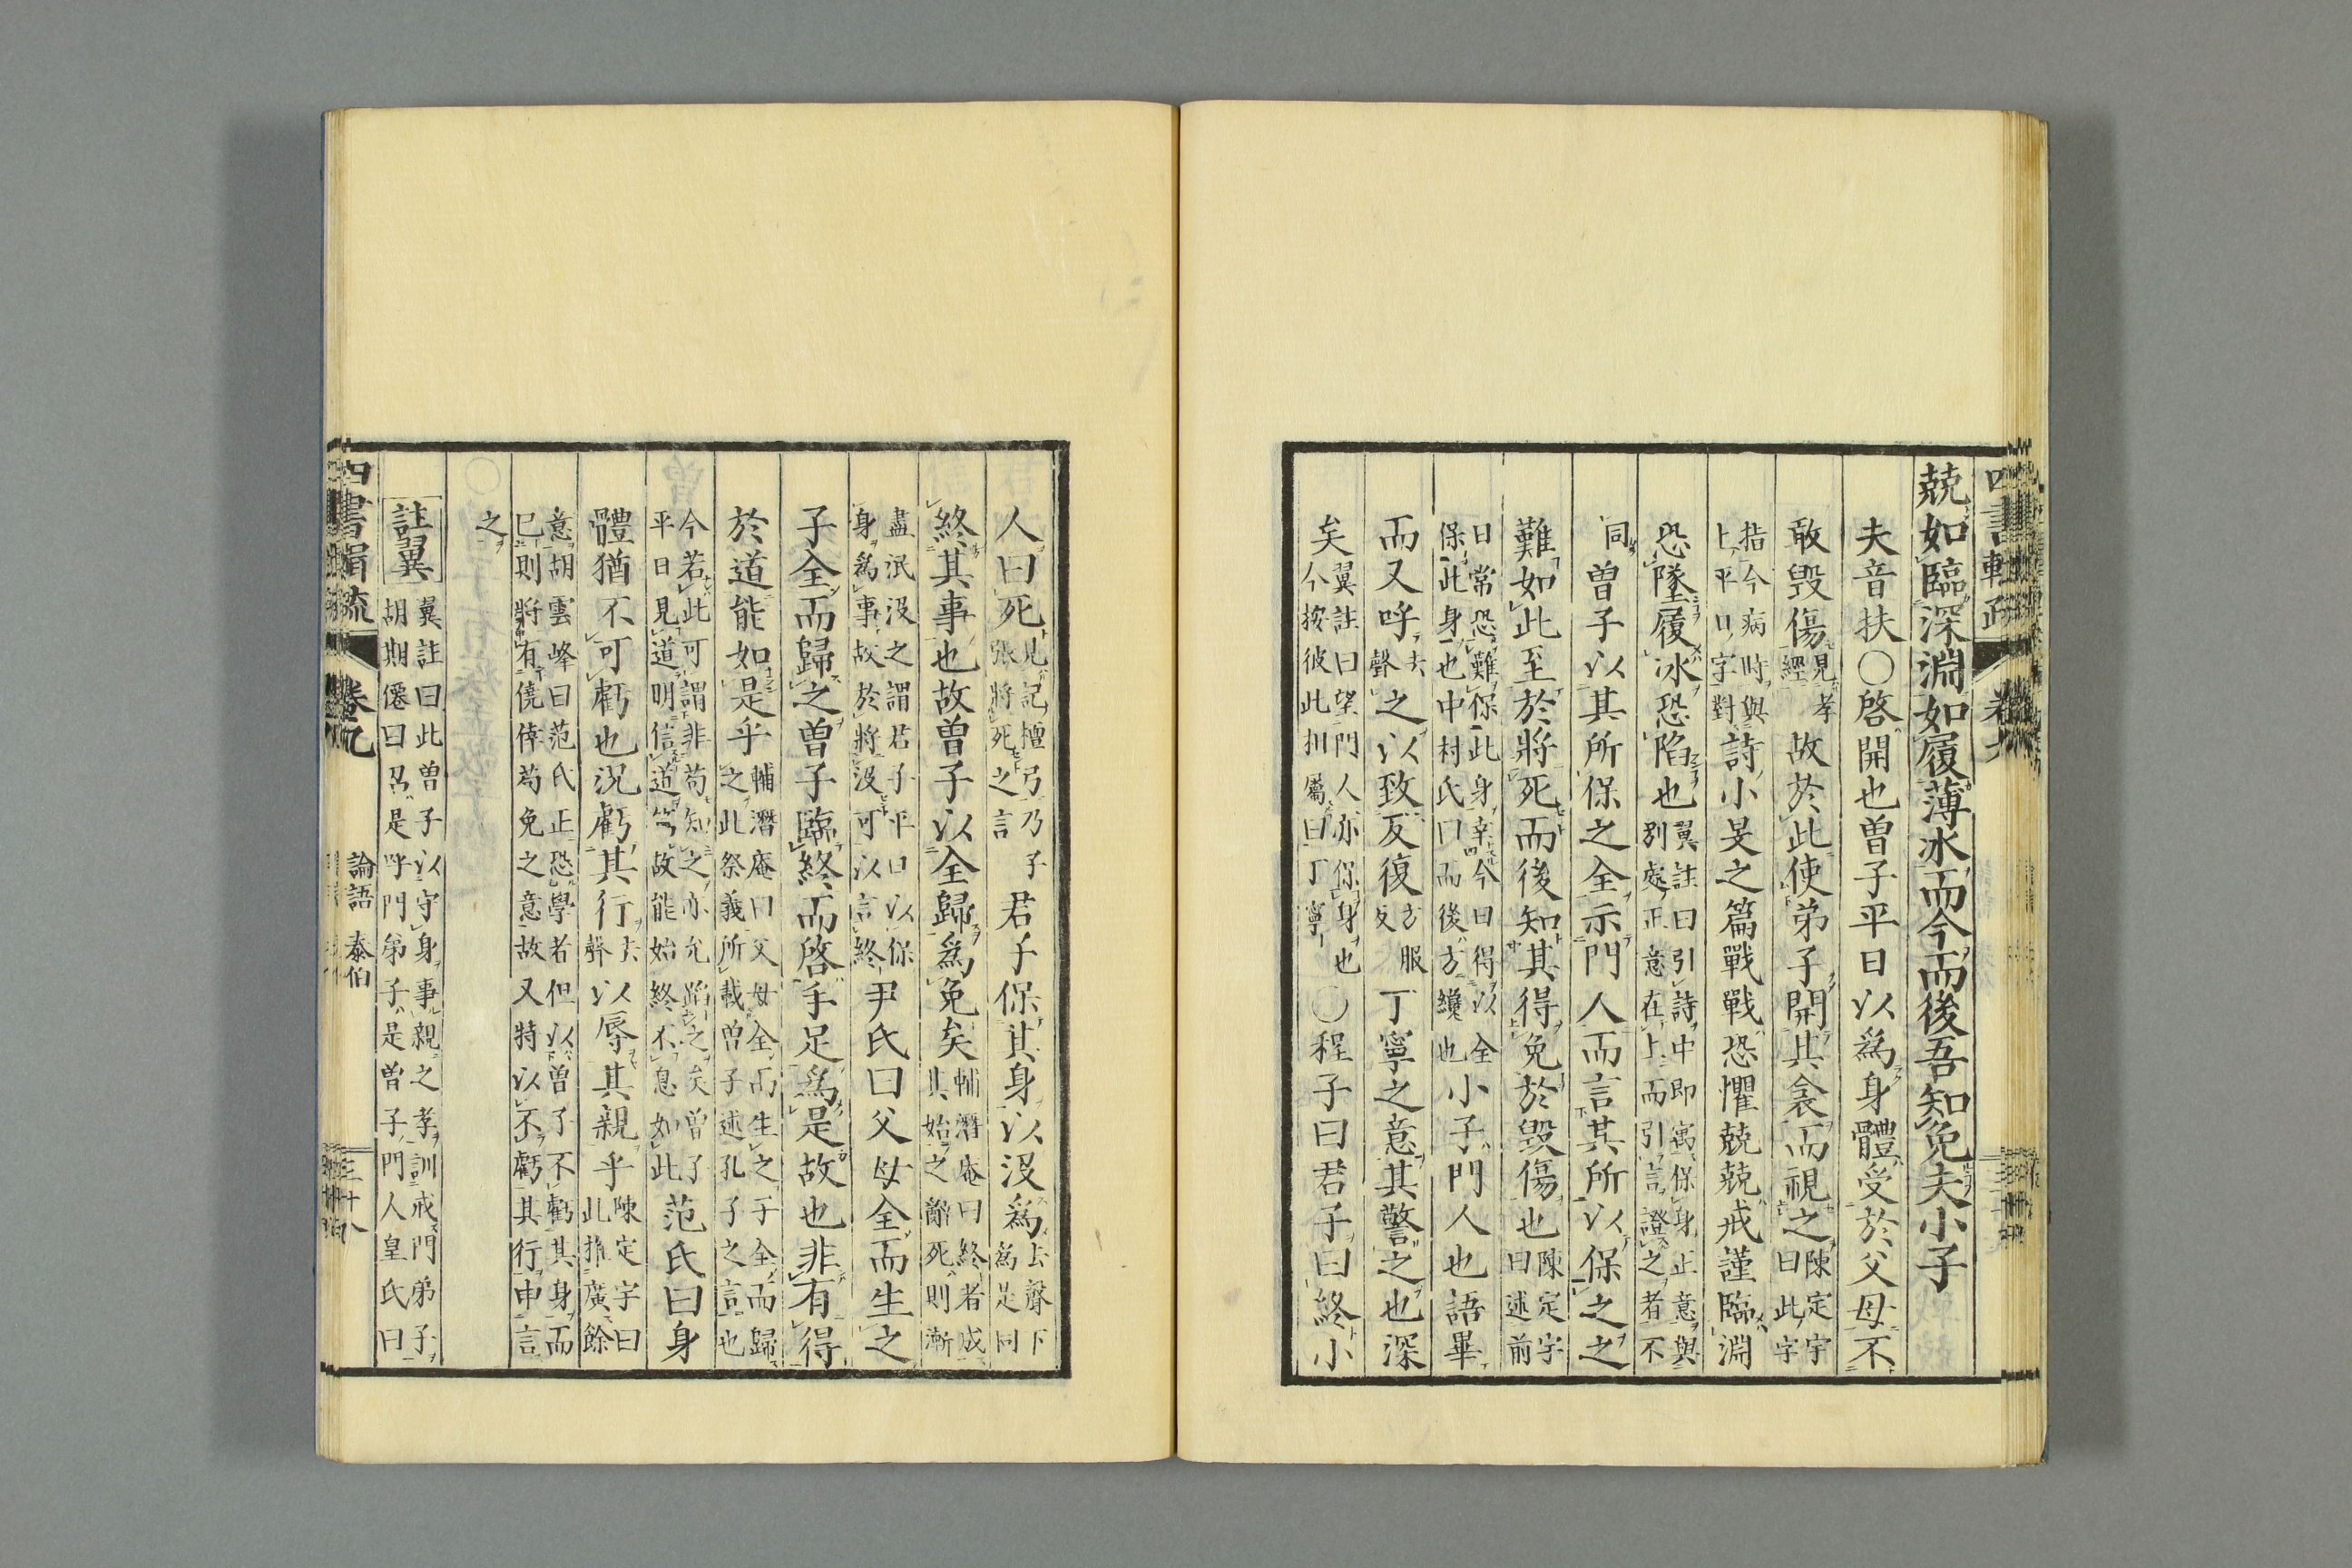 兢如臨深淵如履薄冰而今而後吾知免夫小子
夫音扶〇啓開也曽子平日以爲身體受於父母不
敢毀傷見孝經故於此使弟子開其衾而視之陳定宇曰此字
指今病時與上平日字對詩小旻之篇戰戰恐懼兢兢戒謹臨淵
恐墜履冰恐陷也翼註曰引詩中即寓保身正意與別處正意在上而引言證之者不
同曽子以其所保之全示門人而言其所以保之之
難如此至於將死而後知其得免於毀傷也陳定宇曰述前
日常恐難保此身幸今日得以全保此身也中村氏曰而後方纔也小子門人也語畢
而又呼去聲之以致反復方服反丁寧之意其警之也深
矣翼註曰望門人亦保身也今按彼此扣屬曰丁寧〇程子曰君子曰終小
人曰死見記檀弓乃子張將死之言君子保其身以没爲去聲下爲是同
終其事也故曽子以全歸爲免矣輔潛庵曰終者成其始之辭死則漸
盡泯没之謂君子平日以保身爲事故於將没可以言終尹氏曰父母全而生之
子全而歸之曽子臨終而啓手足爲是故也非有得
於道能如是乎輔潛庵曰父母全而生之子全而歸之此祭義所載曽子述孔子之言也
今若此可謂非苟知之亦允蹈之矣曽子平日見道明信道篤故能始終不息如此范氏曰身
體猶不可虧也況虧其行去聲以辱其親乎陳定宇曰此推廣餘
意胡雲峰曰范氏正恐學者但以曽子不虧其身而已則將有僥倖苟免之意故又特以不虧其行申言
之
註翼翼註曰此曽子以守身事親之孝訓戒門弟子胡期僊曰召是呼門弟子是曽子門人皇氏曰
卷九 論語 泰伯 三十八